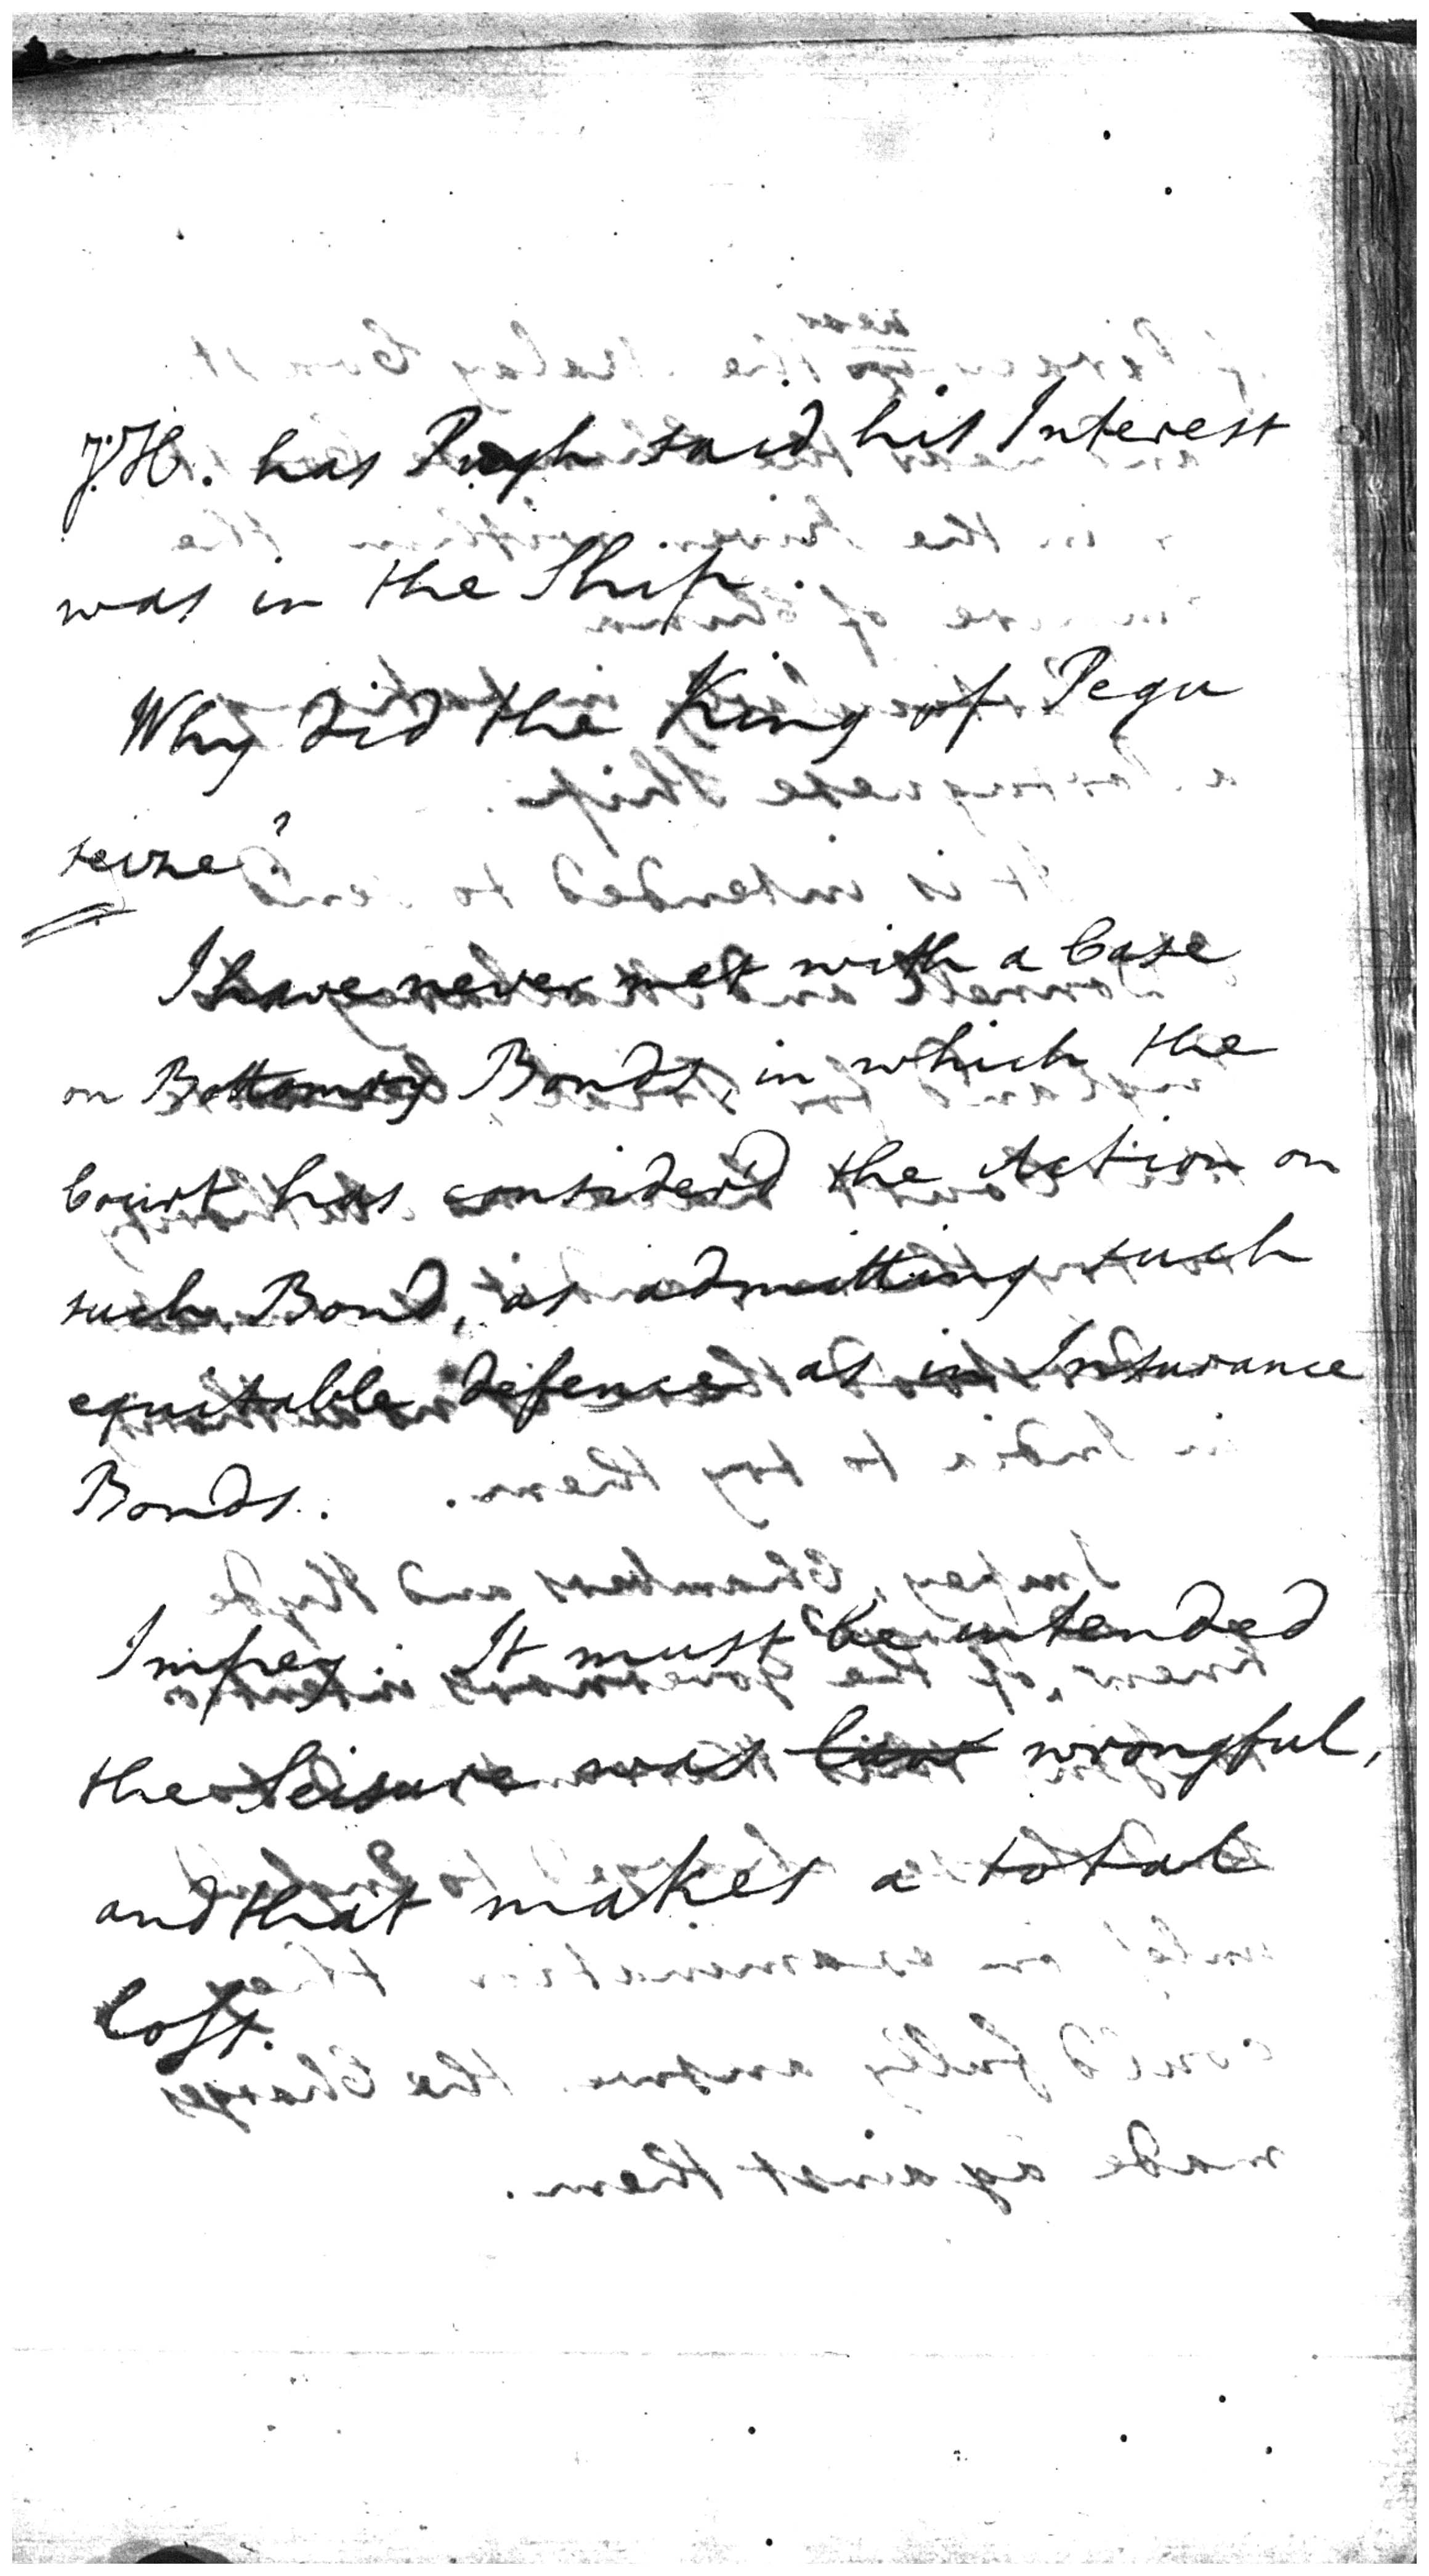 J.H. has Pugh said his Interest
was in the Ship.
Why did the King of Pegu
seize?
I have never met with a Case
on Bottomry Bonds, in which the
Court has consider'd the Action on
such Bond, as admitting such
equitable defence as in Insurance
Bonds.
Impey. It must be intended
the Seisure was wrongful,
and that makes a total
loss.